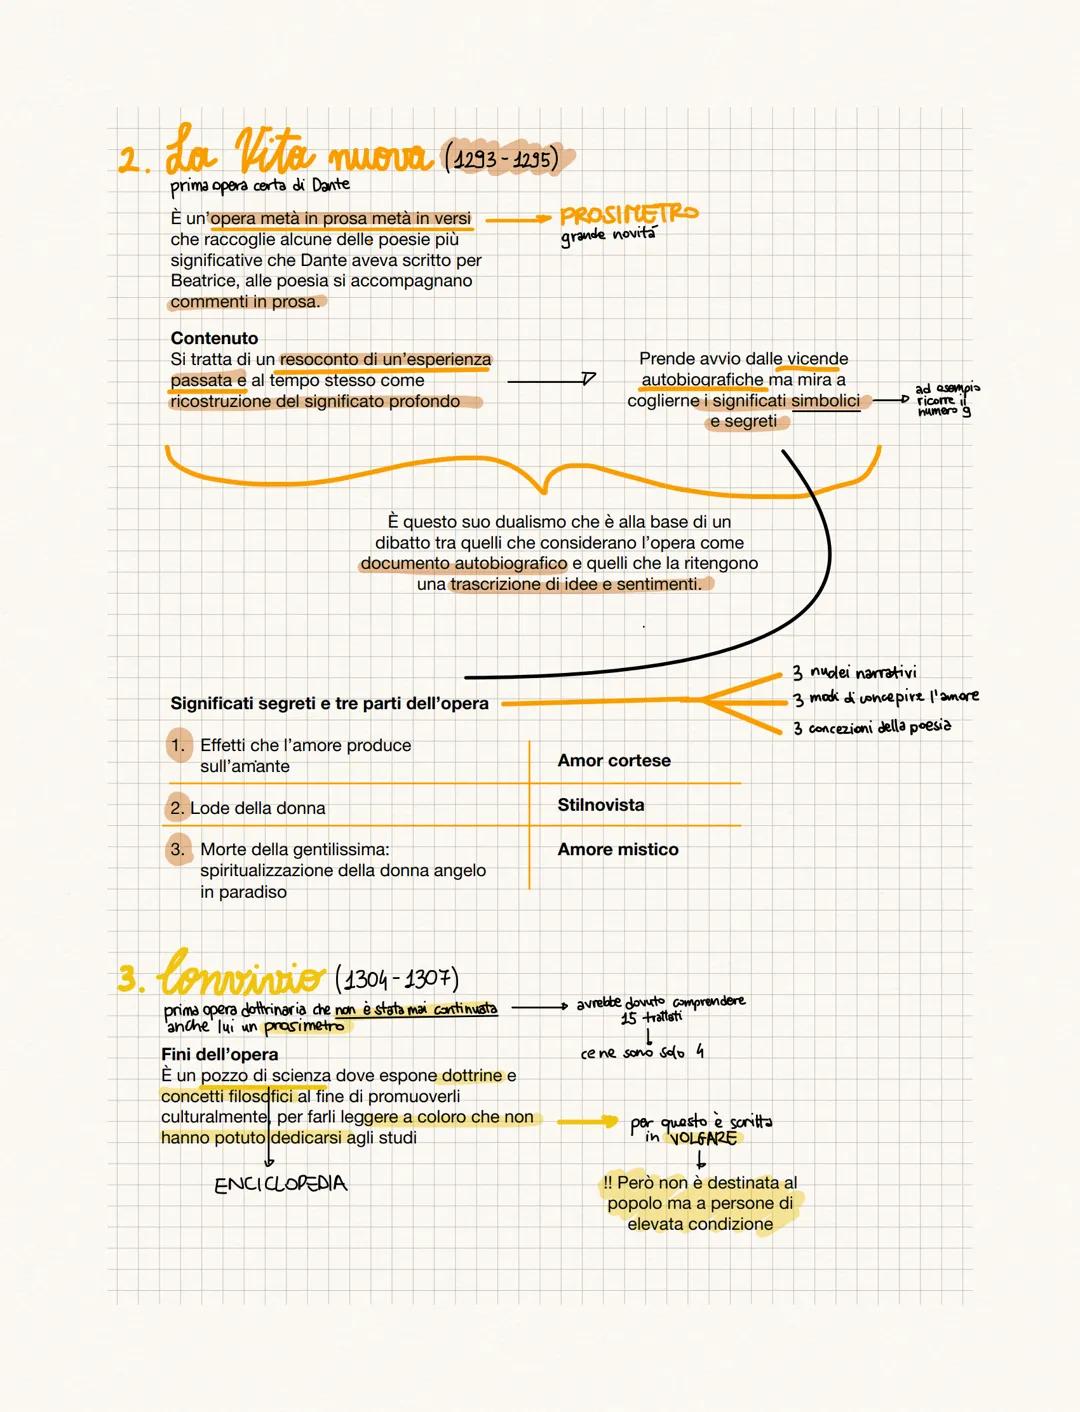 2. La Vita nuova (1293-1295)
prima opera certa di Dante
È un'opera metà in prosa metà in versi
che raccoglie alcune delle poesie più
significative che Dante aveva scritto per
Beatrice, alle poesia si accompagnano
commenti in prosa.
PROSIMETRO
grande novità
Contenuto
Si tratta di un resoconto di un'esperienza
passata e al tempo stesso come
ricostruzione del significato profondo
Prende avvio dalle vicende
autobiografiche ma mira a
coglierne i significati simbolici
e segreti
ad esempio
ricorre il
numero 9
È questo suo dualismo che è alla base di un
dibatto tra quelli che considerano l'opera come
documento autobiografico e quelli che la ritengono
una trascrizione di idee e sentimenti.
Significati segreti e tre parti dell'opera
3 nuclei narrativi
3 modi di concepire l'amore
3 concezioni della poesia
1. Effetti che l'amore produce
sull'amante
Amor cortese
2. Lode della donna
Stilnovista
3. Morte della gentilissima:
spiritualizzazione della donna angelo
in paradiso
Amore mistico
3. Convivio (1304-1307)
prima opera dottrinaria che non è stata mai continuata
anche lui un prosimetro
avrebbe dovuto comprendere
15 trattati
ce ne sono solo 4
Fini dell'opera
È un pozzo di scienza dove espone dottrine e
concetti filosofici al fine di promuoverli
culturalmente, per farli leggere a coloro che non
hanno potuto dedicarsi agli studi
ENCICLOPEDIA
per questo è scritta
in VOLGARE
!! Però non è destinata al
popolo ma a persone di
elevata condizione